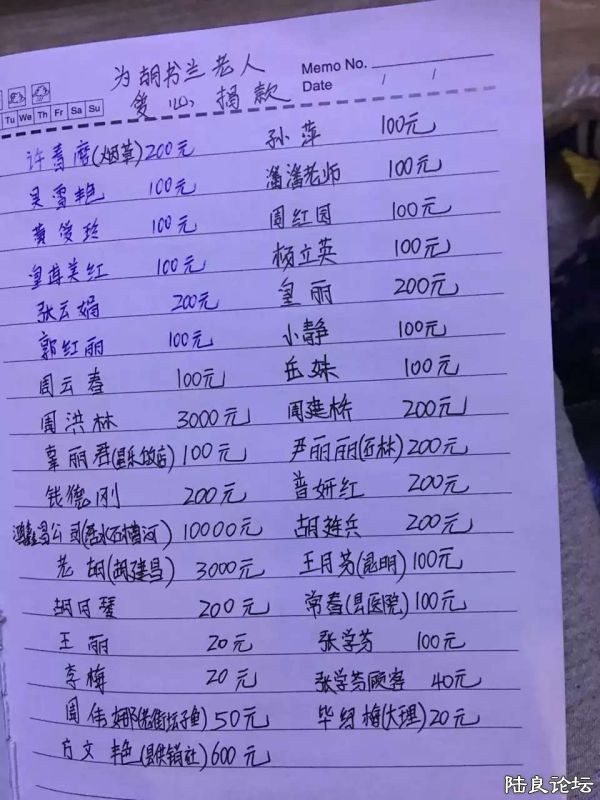 为胡书兰老人
爱心捐款
Memo No.
Date / /
Tu We Th Fr Sa Su
许春磨(烟草)200元 孙萍 100元
吴雪艳 100元 潘潘老师 100元
黄俊玲 100元 周红园 100元
皇甫美红 100元 杨立英 100元
张云娟 200元 皇丽 200元
郭红丽 100元 小静 100元
周云春 100元 岳姝 100元
周洪林 3000元 周建桥 200元
辜丽君(昆乐饭店)100元 尹丽丽(石林)200元
钱德刚 200元 普妍红 200元
公司(响水石槽河)10000元 胡兵 200元
老胡(胡建昌) 3000元 王月芬(昆明)100元
胡月琴 200元 常春(县医院)100元
王丽 20元 张学芬 100元
李梅 20元 张学芬顾客 40元
周伟娜(老街坛子鱼)50元 毕纽梅(大理)20元
方文艳(县供销社)600元
陆良论坛